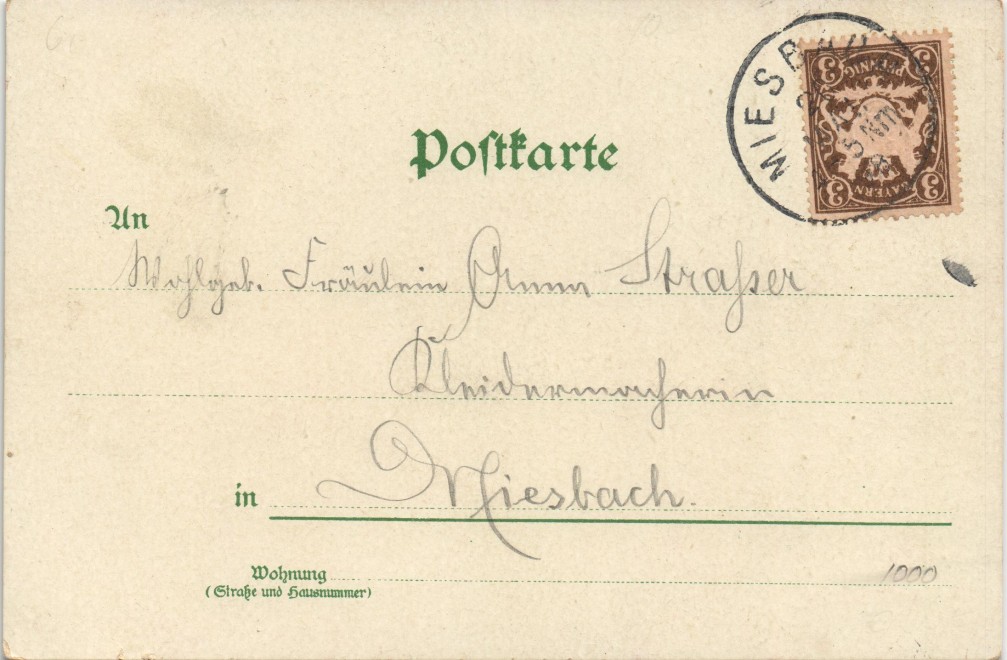 MIESBACH
3 3
PFENNIG
BAYERN
3 3
Postkarte
An
Wohlgeb. Fräulein Anna Straßer
Kleidermacherin
in Miesbach.
Wohnung
(Straße und Hausnummer)
1000